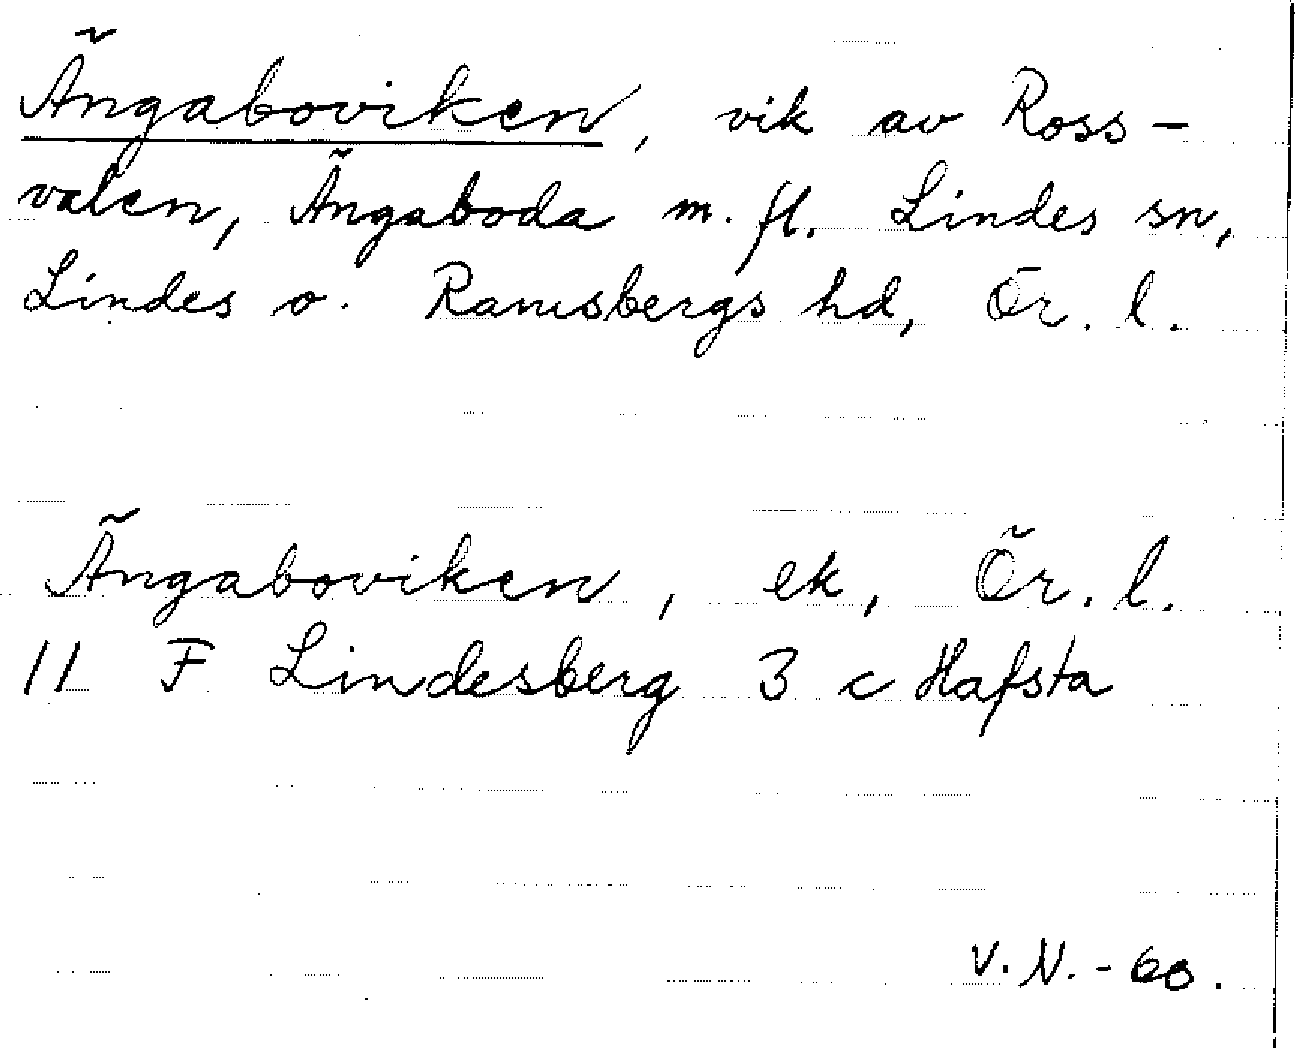 Ängaboviken, vik av Ross-
valen, Ängaboda m. fl. Lindes sn,
Lindes o. Ramsbergs hd, Ör. l.
Ängaboviken, ek, Ör. l.
11 F Lindesberg 3 c Hafsta
V. N. - 60.